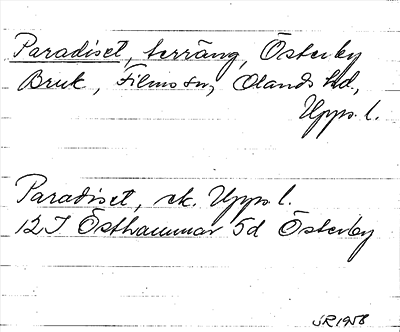 Paradiset, terräng, Österby
Bruk, Films sn, Olands hd,
Upps. l.
Paradiset, ek. Upps l.
12I Östhammar 5d Österby
JR 1958